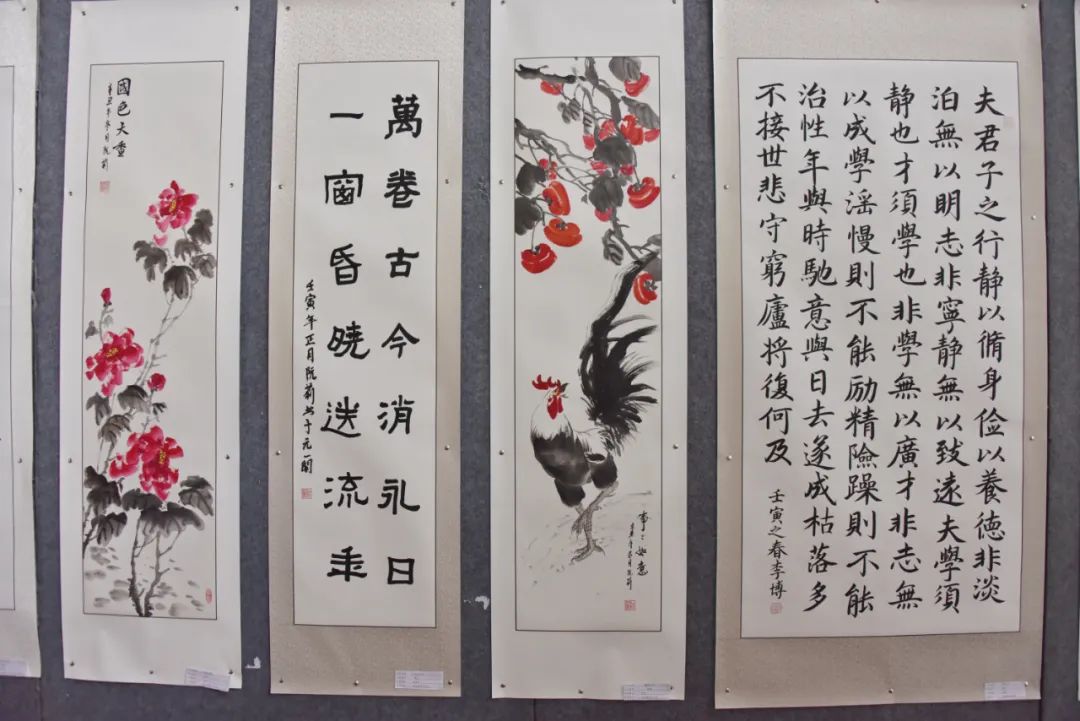 國色天香
辛丑年冬月阮莉
萬卷古今消永日
一窗昏曉送流年
壬寅年正月阮莉书于元一閣
事〻如意
辛丑年冬月阮莉
夫君子之行静以脩身俭以養德非淡
泊無以明志非寧静無以致遠夫學須
静也才須學也非學無以廣才非志無
以成學淫慢則不能励精險躁則不能
治性年與時馳意與日去遂成枯落多
不接世悲守窮廬将復何及
壬寅之春李博